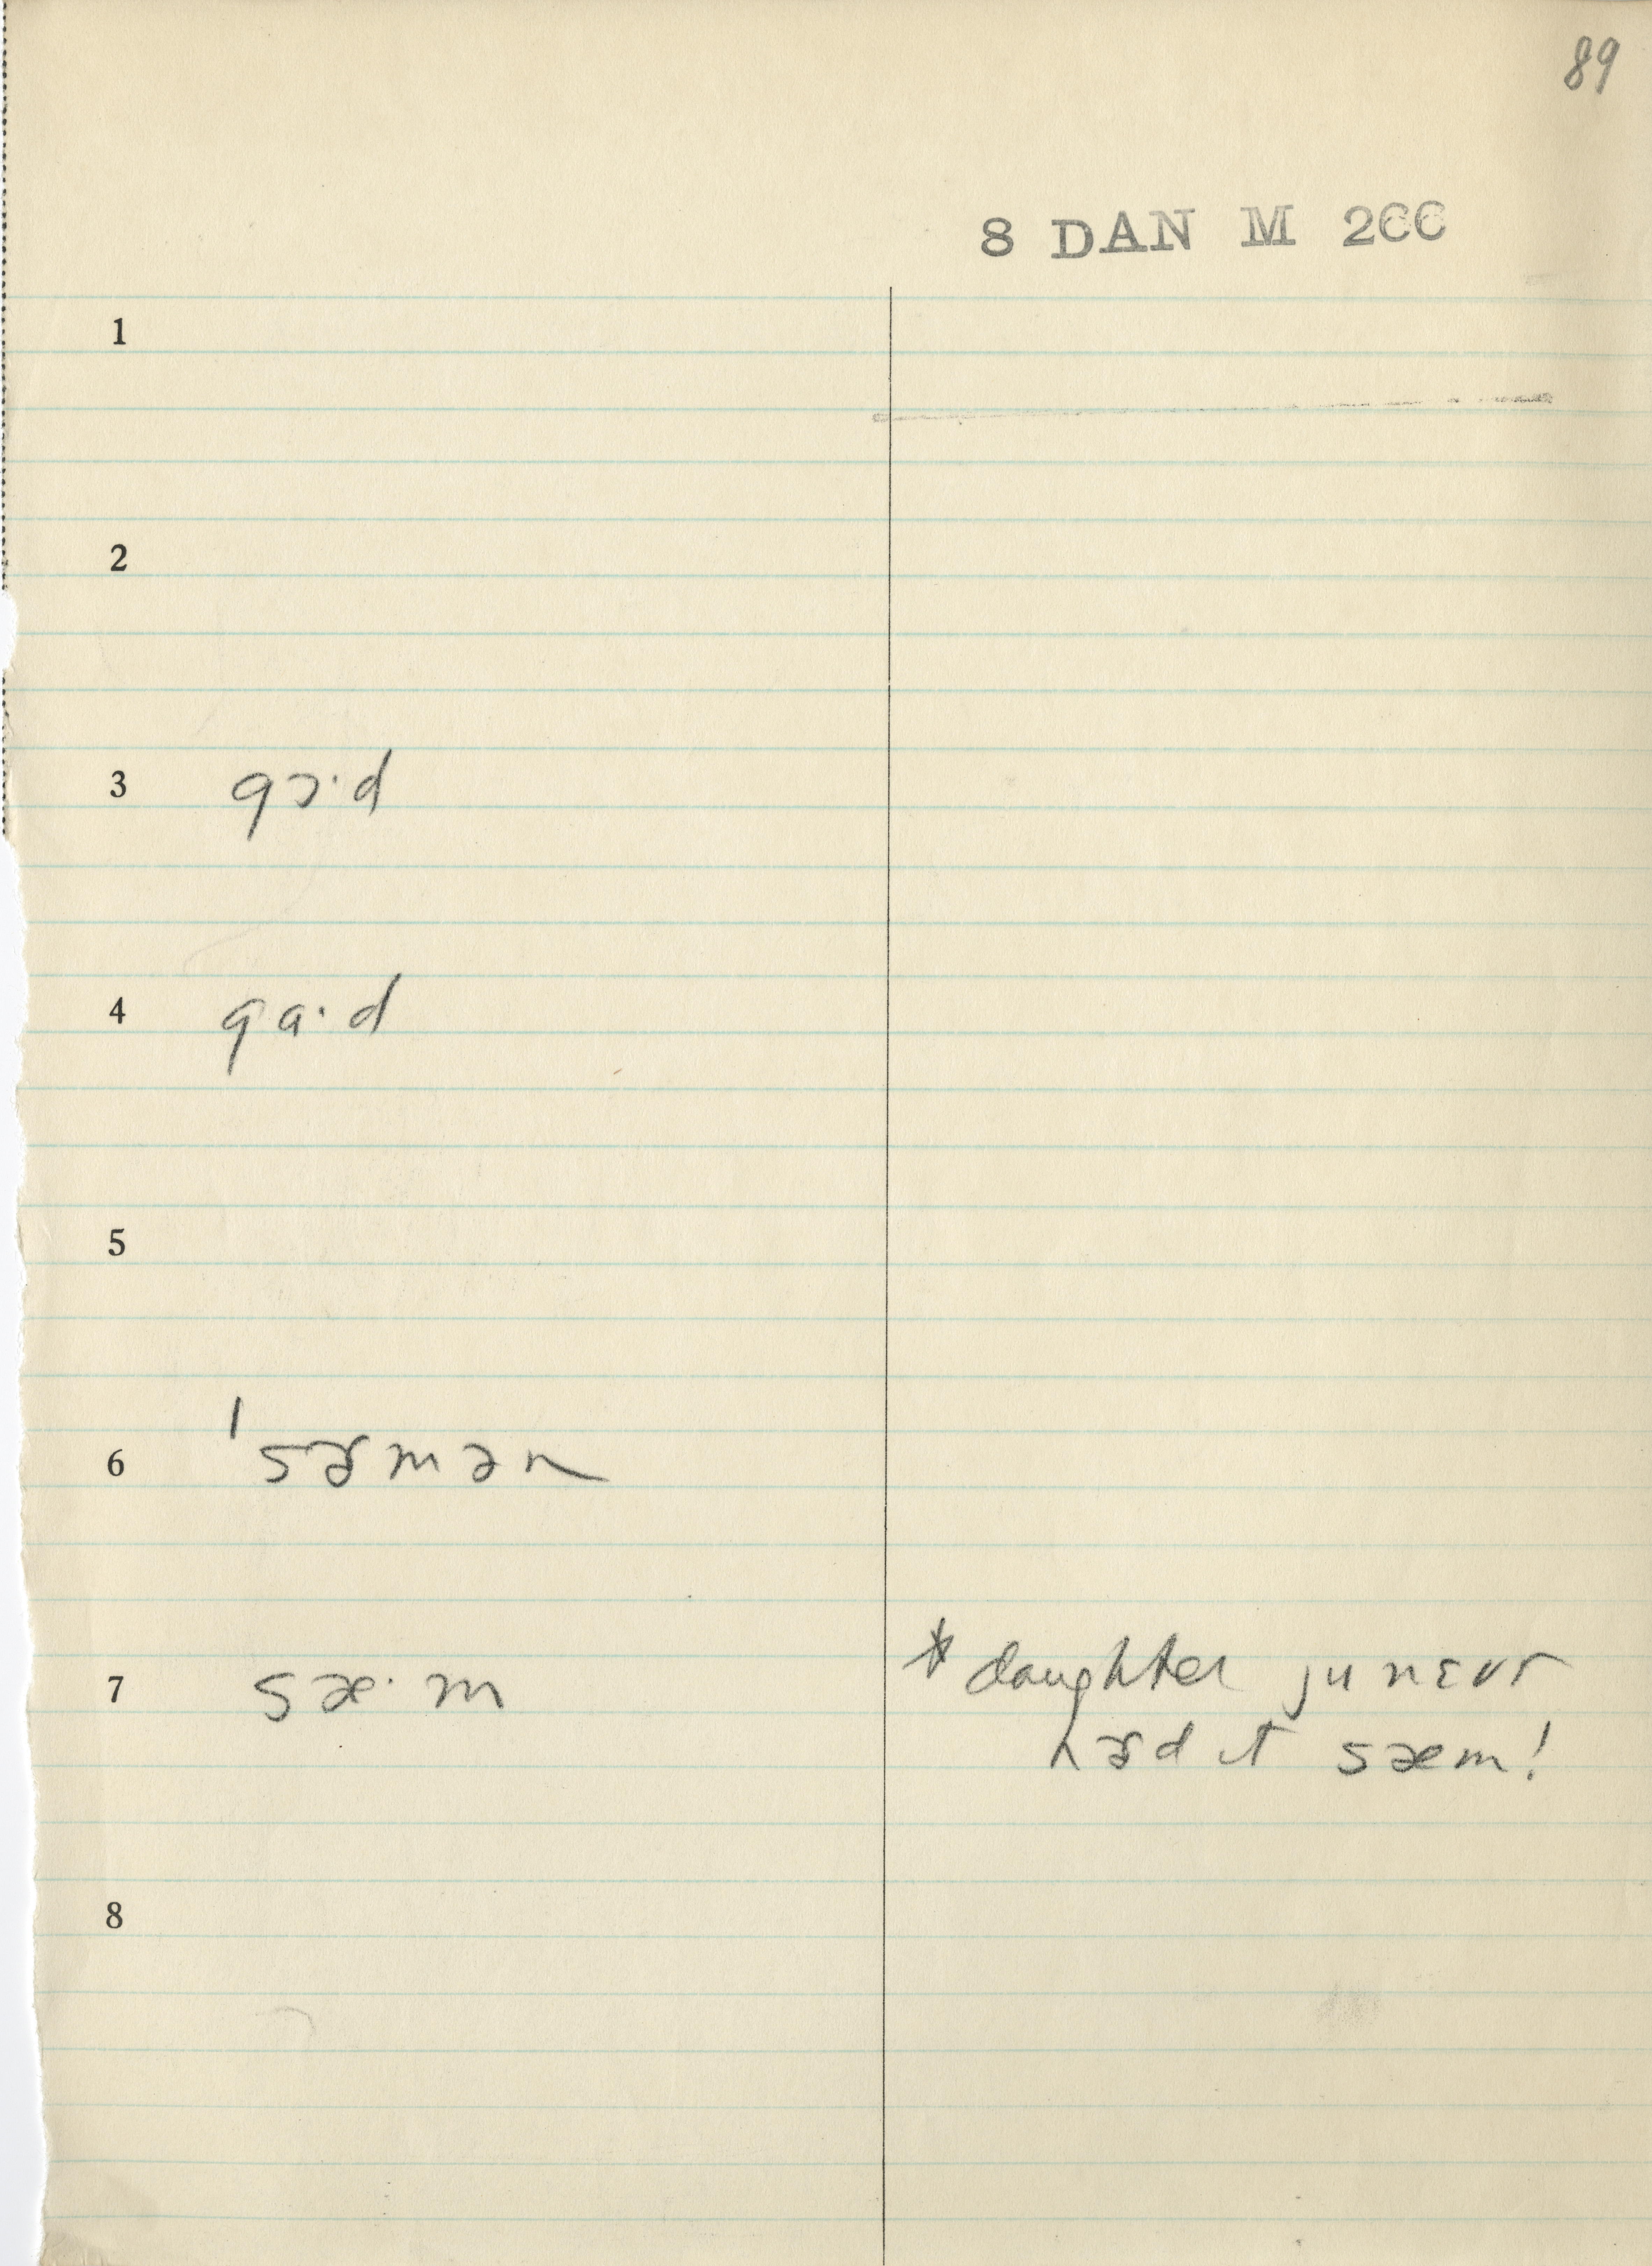 89
8 DAN M 2CC
1
2
3 gɔ·d
4 ga·d
5
6 ˈsɚmən
7 sæ·m
* daughter ju nɛvɚ
hɚd ɪt sæm!
8